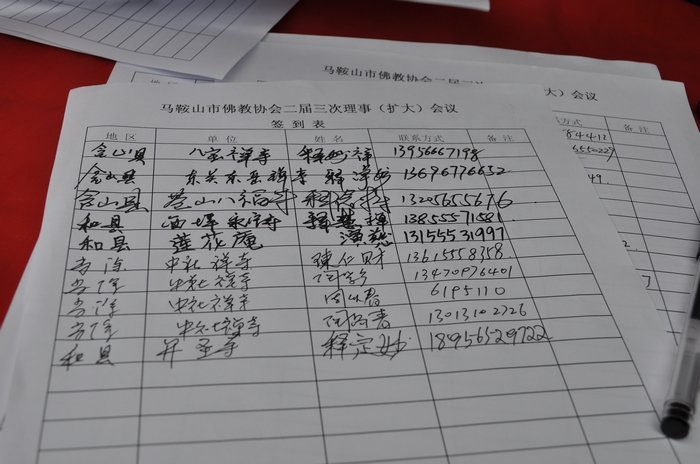 马鞍山市佛教协会二届
大）会议
方式 备注
84412
6550229
49.
马鞍山市佛教协会二届三次理事（扩大）会议
签到表
地区 单位 姓名 联系方式 备注
含山县 八宝禅寺 释妙祥 13956667198
含山县 东关东岳禅寺 释 13696776652
含山县 苍山八福寺 释 13205655676
和县 西埂永宁寺 释慧 13855571581
和县 莲花庵 演慈 13155531997
当涂 中社禅寺 陳仁财 13615558358
当涂 中社禅寺 13470976401
当涂 中社禅寺 6195110
当涂 中社禅寺 13013102226
和县 开圣寺 释定妙 18956529722